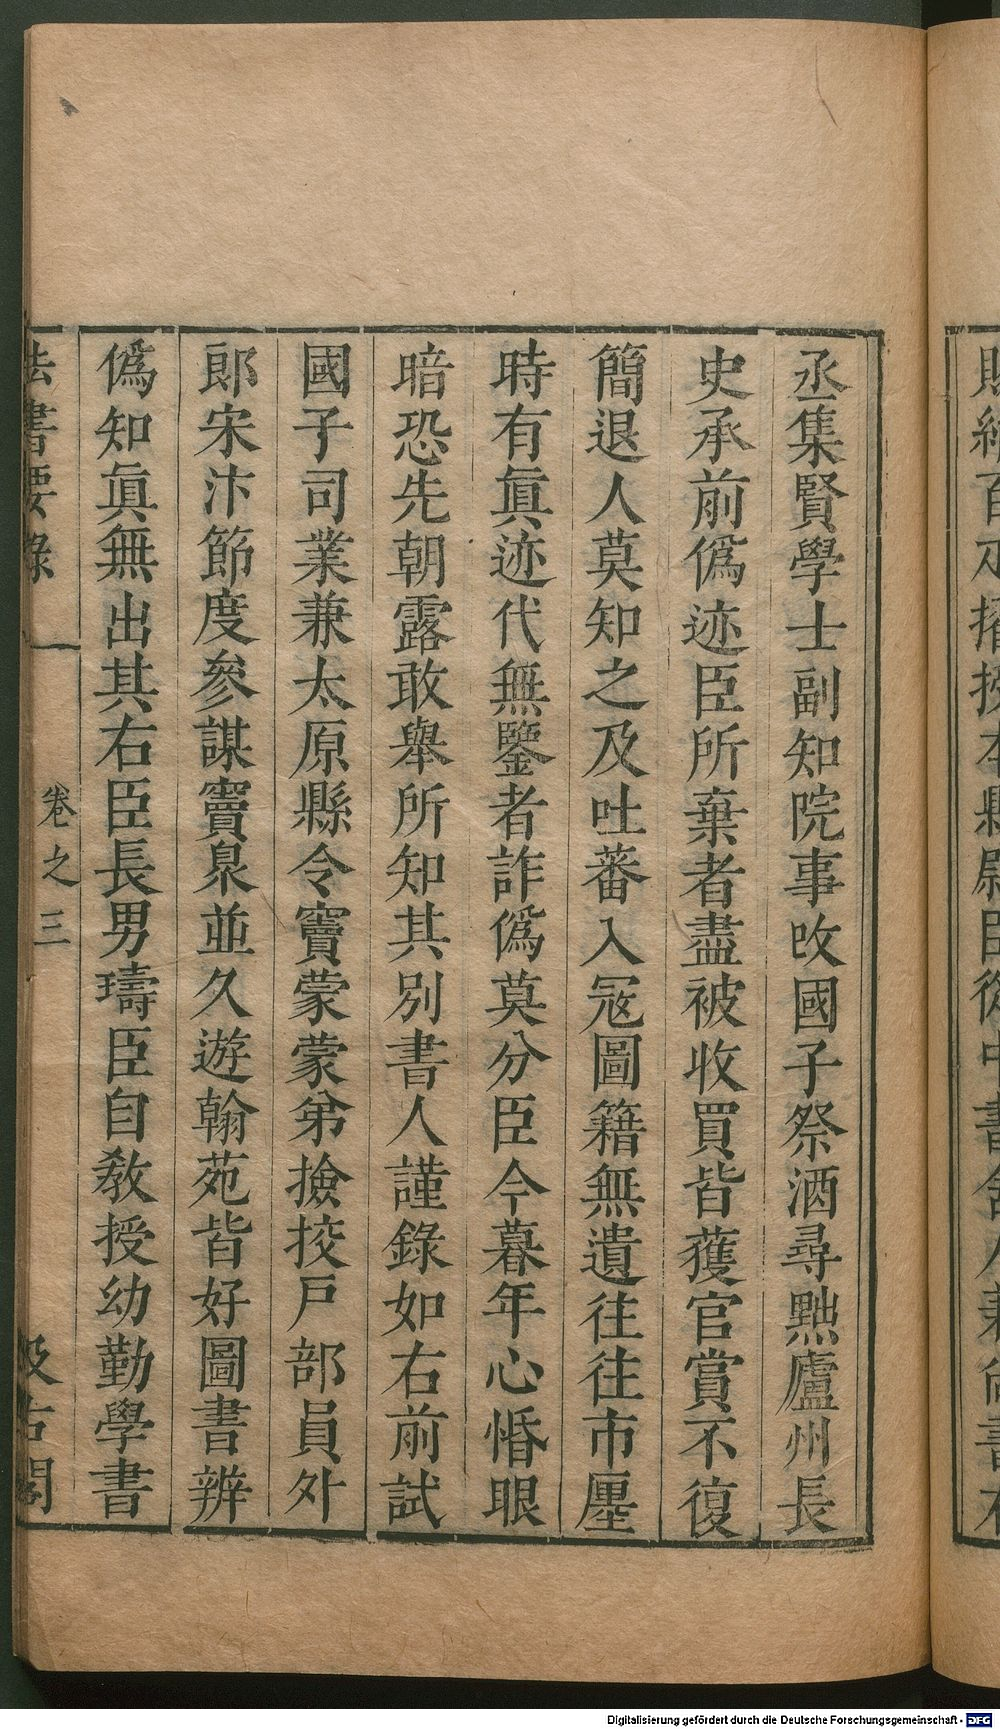 丞集賢學士副知院事改國子祭酒尋黜廬州長
史承前僞迹臣所棄者盡被收買皆獲官賞不復
簡退人莫知之及吐蕃入冦圖籍無遺往往市㕓
時有眞迹代無鑒者詐僞莫分臣今暮年心惛眼
暗恐先朝露敢舉所知其别書人謹錄如右前試
國子司業兼太原縣令竇蒙蒙弟撿挍戸部員外
郎宋汴節度參謀竇臮並久遊翰苑皆好圖書辨
僞知眞無出其右臣長男璹臣自教授幼勤學書
法書要錄
卷之三
汲古閣
Digitalisierung gefördert durch die Deutsche Forschungsgemeinschaft - DFG